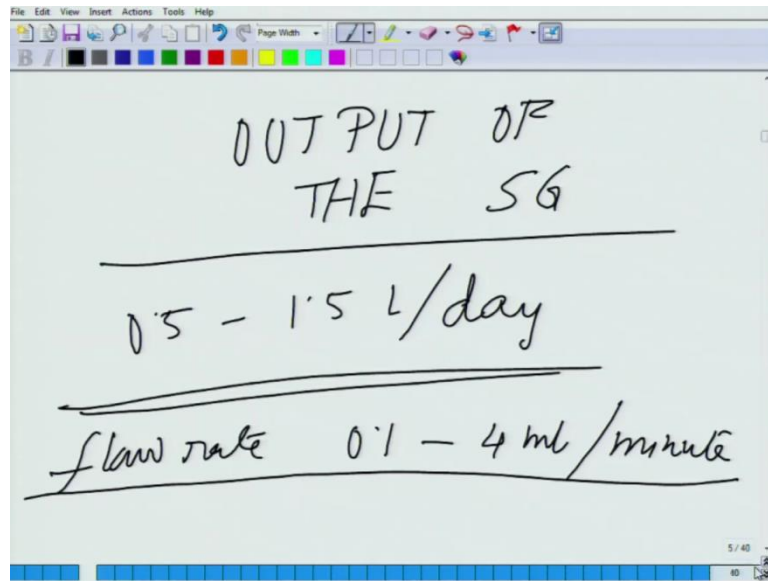 File Edit View Insert Actions Tools Help
Page Width
B I
OUTPUT OF
THE SG
0.5 - 1.5 L/day
flow rate 0.1 - 4 ml/minute
5/40
40